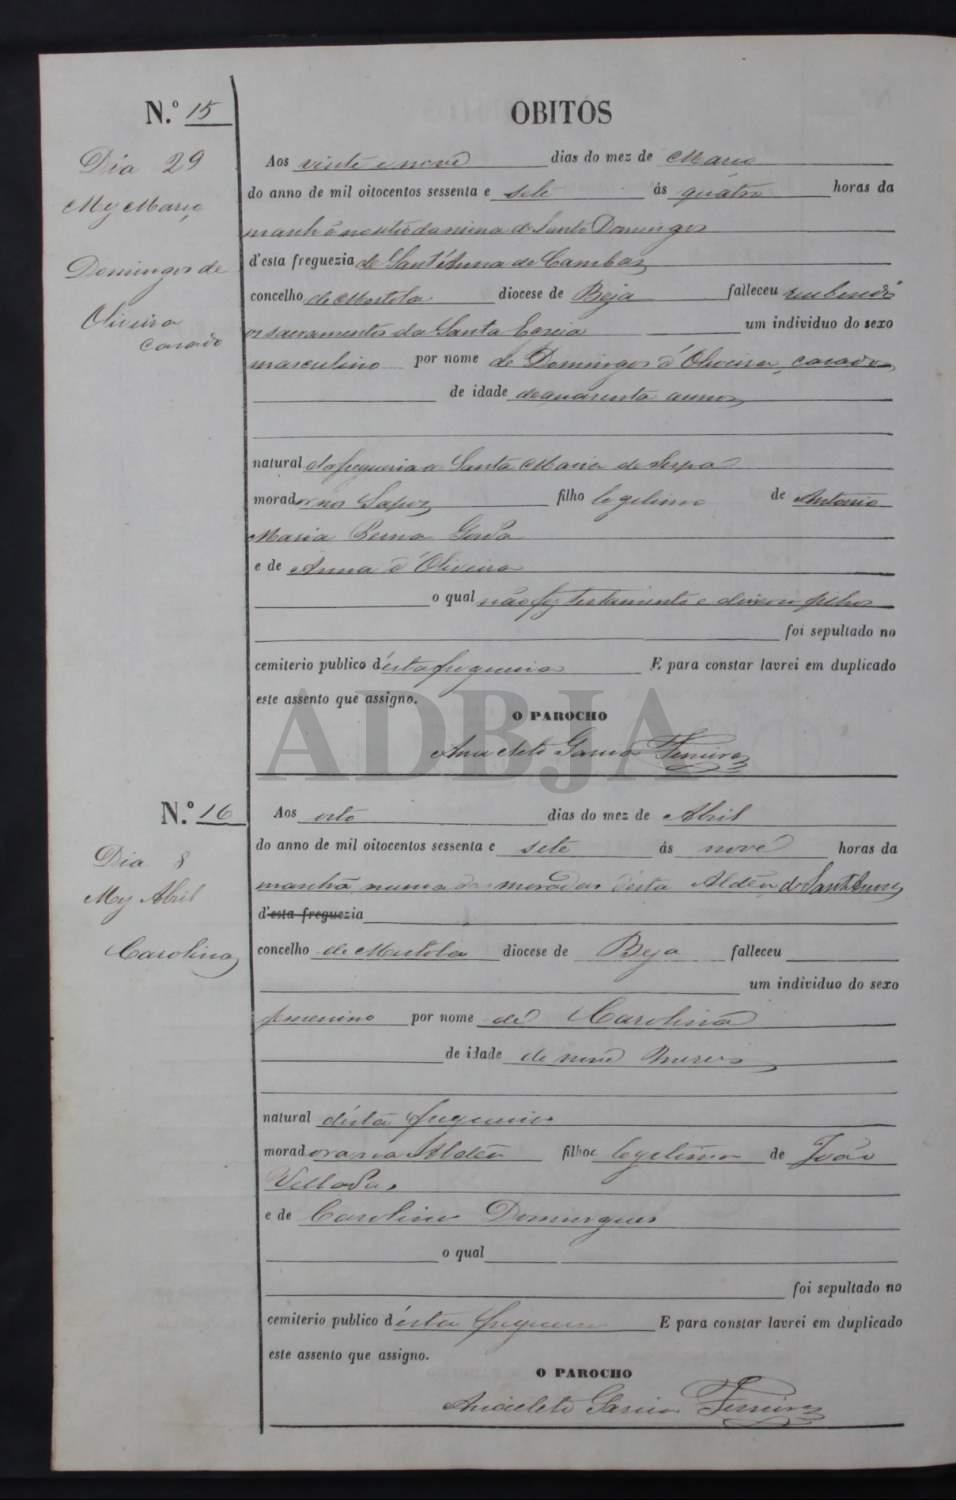 OBITOS
N.º 15
Dia 29
Mez Março
Domingos de
Oliveira
casado
Aos vinte e nove dias do mez de Março
do anno de mil oitocentos sessenta e sete ás quatro horas da
manhã no sitio da mina de Santo Domingos
d'esta freguezia de Sant'Anna de Cambas
concelho de Mertola diocese de Beja falleceu recebendo
os sacramentos da Santa Egreia um individuo do sexo
masculino por nome de Domingos d'Oliveira, casado,
de idade de quarenta annos,
natural da freguesia Santa Maria de Serpa
morador filho legitimo de Antonio
Maria
e de Anna d'Oliveira
o qual não fez testamento e deixou filhos
foi sepultado no
cemiterio publico d'esta freguesia E para constar lavrei em duplicado
este assento que assigno.
O PAROCHO
Anacleto Garcia Ferreira
ADBJA
N.º 16
Dia 8
Mez Abril
Carolina
Aos oito dias do mez de Abril
do anno de mil oitocentos sessenta e sete ás nove horas da
manhã numa das moradas desta Aldêa de Sant'Anna
d'esta freguezia
concelho de Mertola diocese de Beja falleceu
um individuo do sexo
femenino por nome de Carolina
de idade de nove mezes
natural d'esta freguesia
moradora na Aldêa filha legitima de João
e de Carolina Domingues
o qual
foi sepultado no
cemiterio publico d'esta freguesia E para constar lavrei em duplicado
este assento que assigno.
O PAROCHO
Anacleto Garcia Ferreira